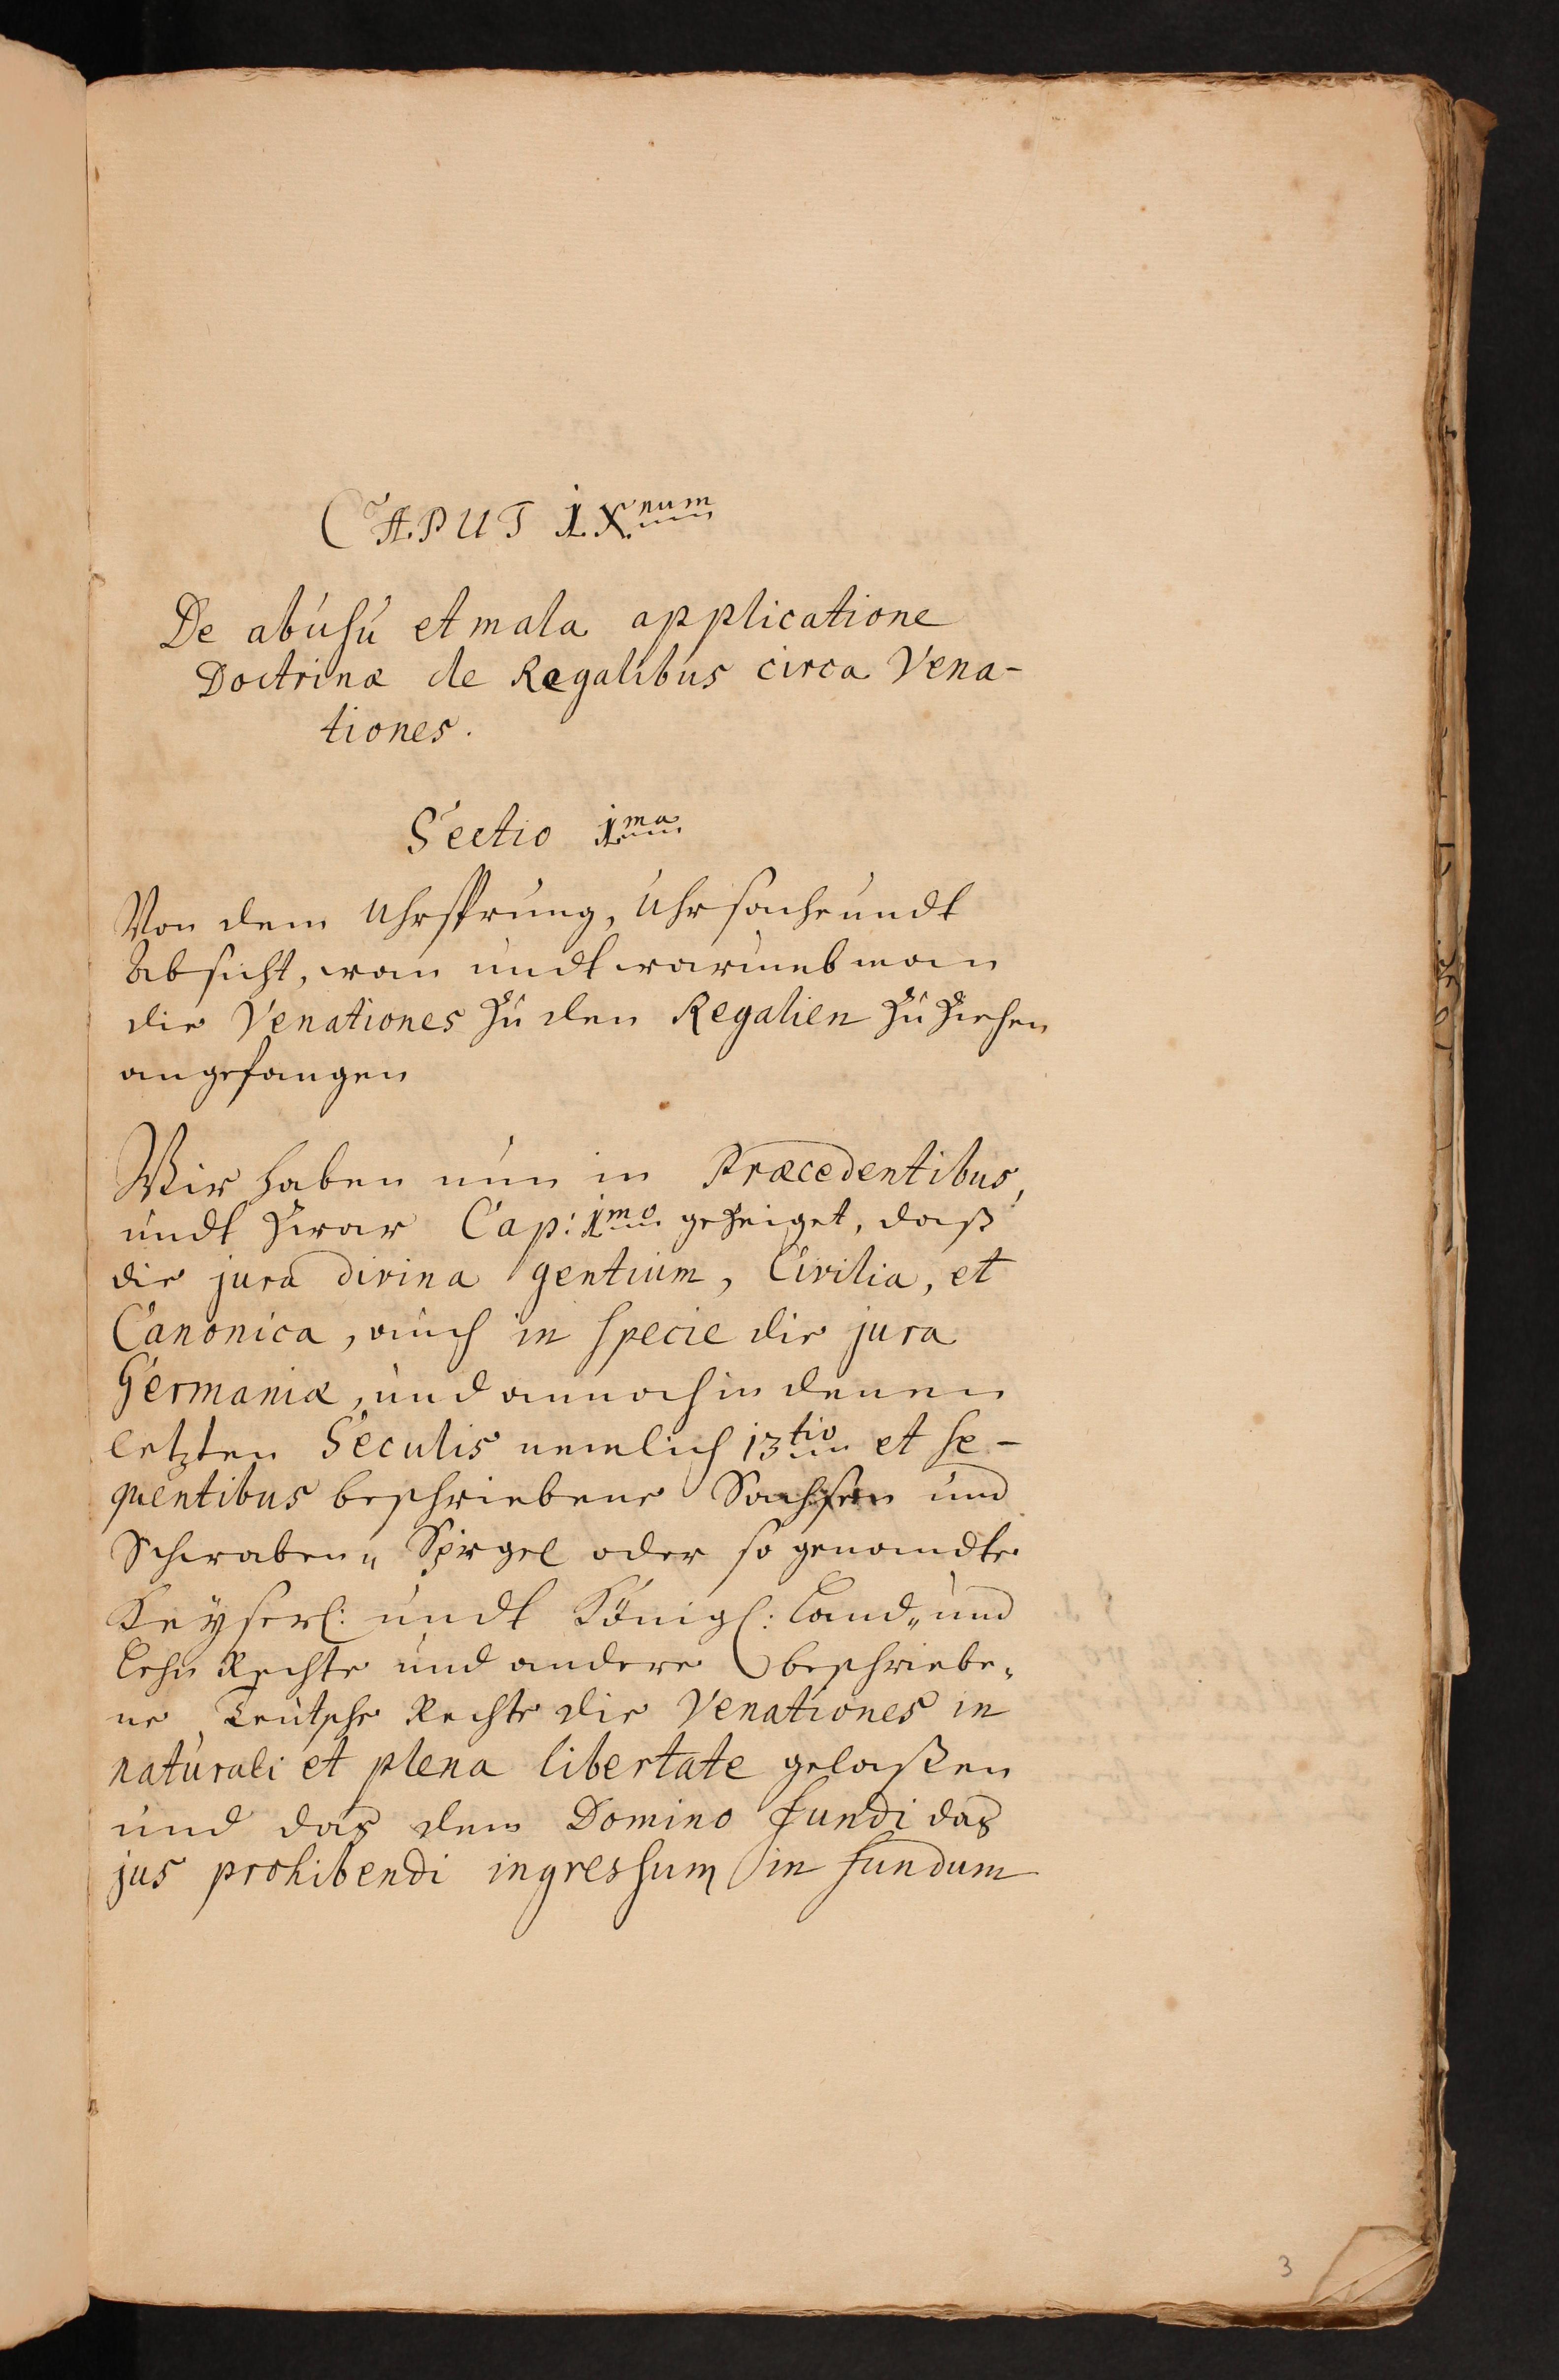 CAPUT IX num
De abusu et mala applicatione
Doctrinæ de Regalibus circa Vena-
tiones.
Sectio 1ma
Von dem Uhrsprung, Uhrsache undt
Absicht, wan undt warumb man
die Venationes zu den Regalien zu ziehen
angefangen
Wir haben nun in Præcedentibus,
undt zwar Cap: 1mo gezeiget, daß
die jura divina gentium, Civilia, et
Canonica, auch in specie die jura
Germaniæ, und annoch in denen
letzten Seculis nemlich 13tio et se-
quentibus beschriebene Sachsen und
Schwaben„ Spiegel oder so genandte
Keyserl: undt Königl: Land„ und
Lehn Rechte und andere beschriebe„
ne Teutsche Rechte die Venationes in
naturali et plena libertate gelaßen
und das dem Domino fundi das
jus prohibendi ingressum in fundum
3